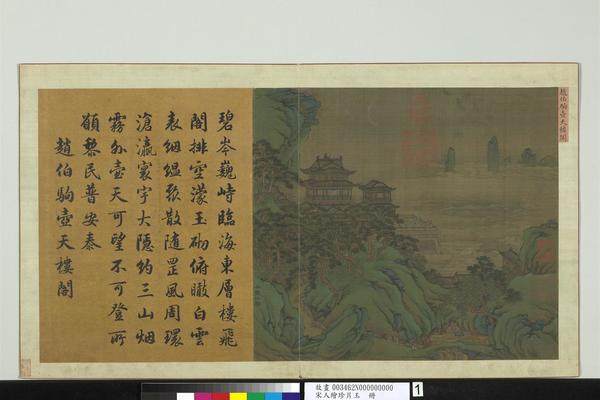 碧岑巍峙臨海東層樓飛
閣排空濛玉砌俯瞰白雲
表絪縕聚散隨罡風周環
滄瀛寰宇大隱約三山烟
霧外壺天可望不可登所
願黎民普安泰
趙伯駒壺天樓閣
趙伯駒壺天樓閣
故畫003462N000000000
宋人繪珍片玉 冊
1